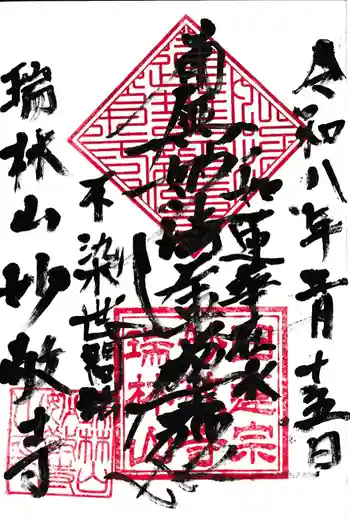 令和八年月十五日
如蓮華在水
南無妙法蓮華経
不染世間法
瑞林山妙敬寺
日蓮宗
瑞林山